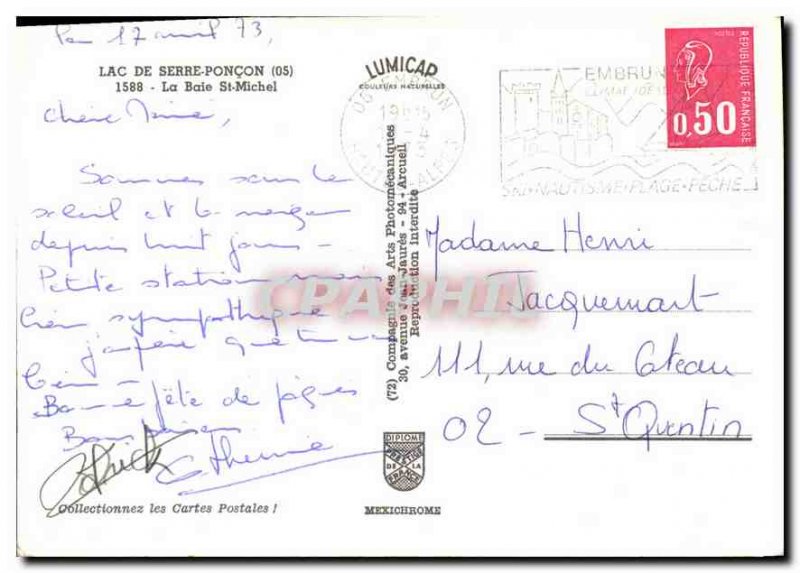 17 avril 73,
LAC DE SERRE-PONÇON (05)
1588 - La Baie St-Michel
LUMICAP
COULEURS NATURELLES
05 EMBRUN
HAUTES ALPES
EMBRUN
SKI-NAUTISME-PLAGE-PÊCHE
POSTES
RÉPUBLIQUE FRANÇAISE
0,50
Chère
Sommes sous le
soleil et la neige
depuis huit jours -
Petite station mais
bien sympathique
j'espère que tu vas
bien -
Bonne fête de pâques
Bons baisers
Patrick
Catherine
Collectionnez les Cartes Postales !
(72) Compagnie des Arts Photomécaniques
30, avenue Jean-Jaurès - 94 - Arcueil
Reproduction interdite
DIPLOME
PRESTIGE
DE LA
FRANCE
MEXICHROME
Madame Henri
Jacquemart
111, rue du Cateau
02 - St Quentin
CPAPHIL